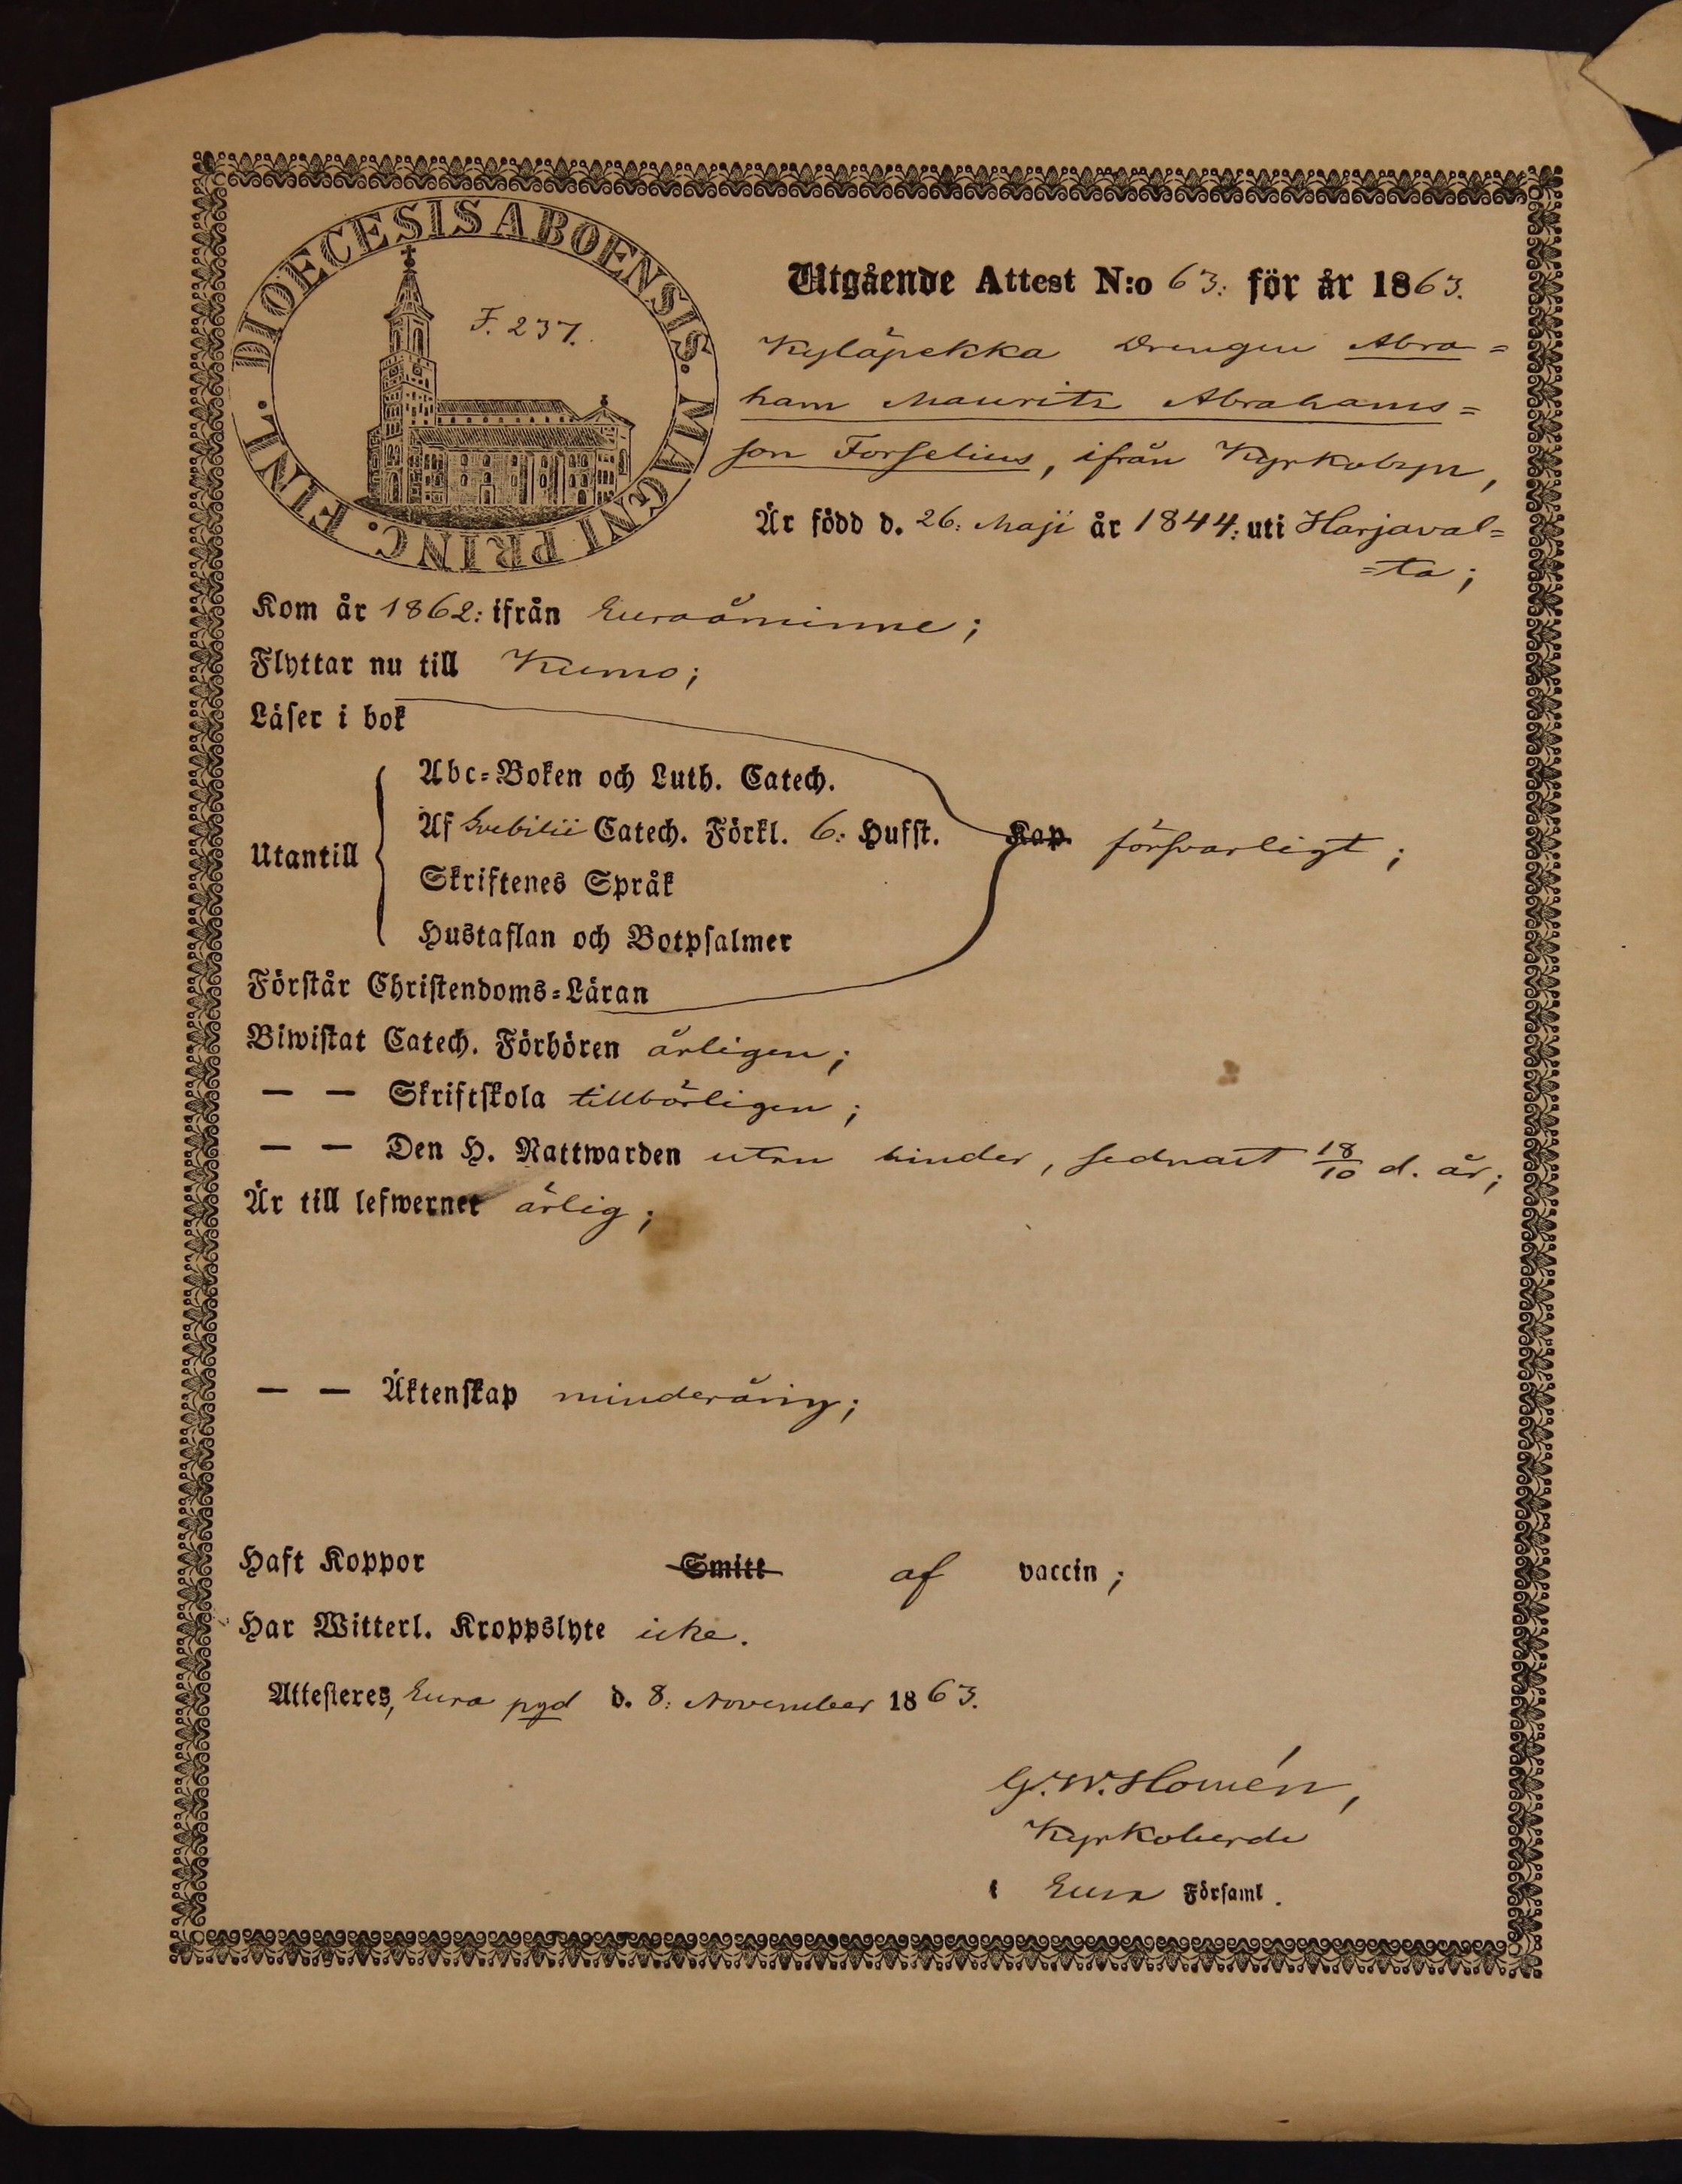 DIOECESIS ABOENSIS. MAGNI PRINC. FINL.
F. 237.
Utgående Attest N:o 63: för år 1863.
Kyläpekka Drengen Abra=
ham Mauritz Abrahams=
son Forselius, ifrån Kyrkobyn,
Är född d. 26: Maji år 1844: uti Harjaval=
=ta;
Kom år 1862: ifrån Euraåminne;
Flyttar nu till Kumo;
Läser i bok
Abc=Boken och Luth. Catech.
Utantill Af Svebilii Catech. Förkl. 6: Hufst. Kap. försvarligt;
Skriftenes Språk
Hustaflan och Botpsalmer
Förstår Christendoms=Läran
Biwistat Catech. Förhören årligen;
— — Skriftskola tillbörligen;
— — Den H. Nattwarden utan hinder, sednast 18/10 d. år;
Är till lefwernet ärlig;
— — Äktenskap minderårig;
Haft Koppor Smitt af vaccin;
Har Witterl. Kroppslyte icke.
Attesteres, Eura pgd d. 8: November 1863.
G. W. Homén,
Kyrkoherde
i Eura Församl.